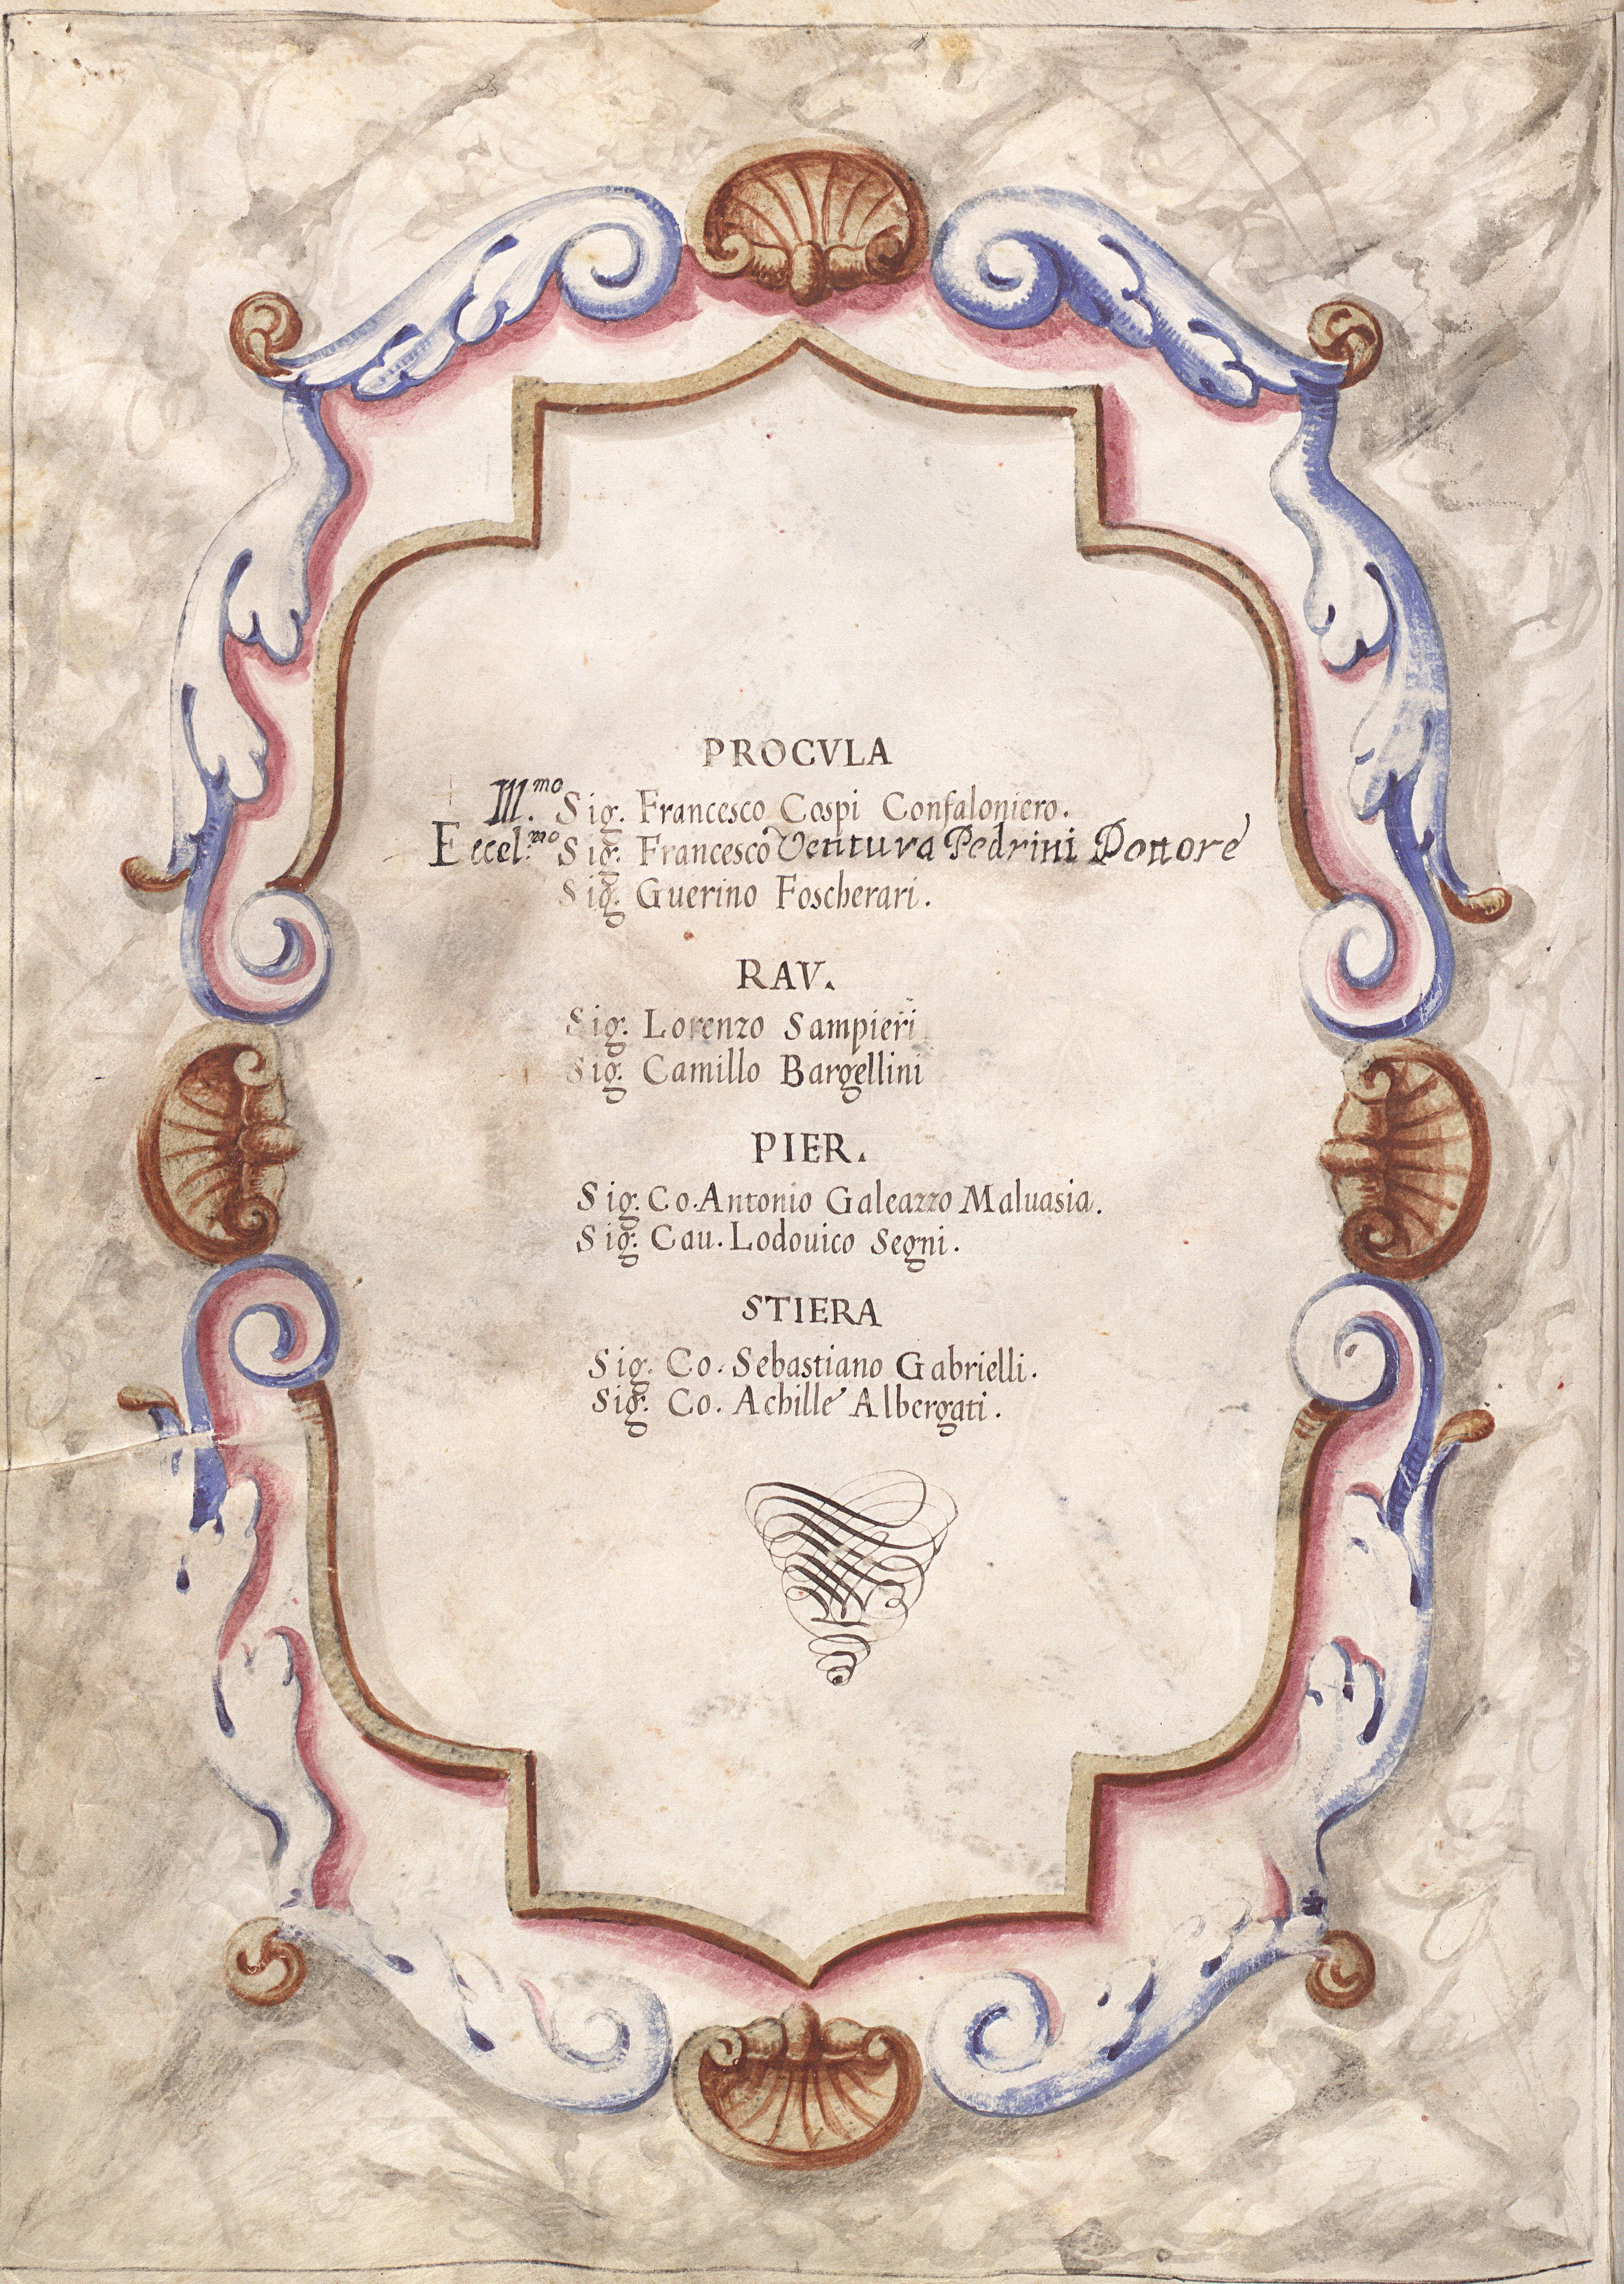 PROCVLA
Ill.mo Sig. Francesco Cospi Confaloniero.
Eccel.mo Sig. Francesco Ventura Pedrini Dottore
Sig. Guerino Foscherari.
RAV.
Sig. Lorenzo Sampieri
Sig. Camillo Bargellini
PIER.
Sig. Co. Antonio Galeazzo Maluasia.
Sig. Cau. Lodouico Segni.
STIERA
Sig. Co. Sebastiano Gabrielli.
Sig. Co. Achille Albergati.